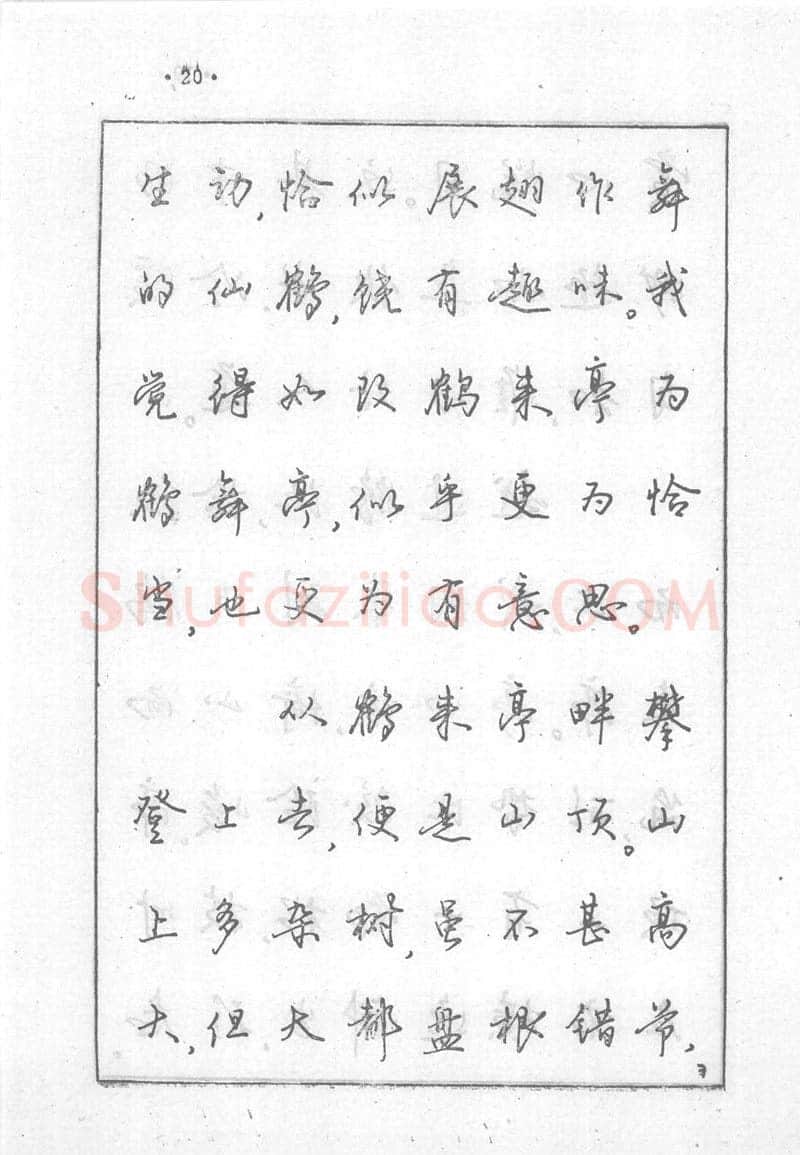 ·20·
生动,恰似。展翅作舞
的仙鹤,饶有趣味。我
觉得如改鹤来亭为
鹤舞亭,似乎更为恰
当,也更为有意思。
从鹤来亭畔攀
登上去,便是山顶。山
上多杂树,虽不甚高
大,但大都盘根错节,
Shufaziliao.COM